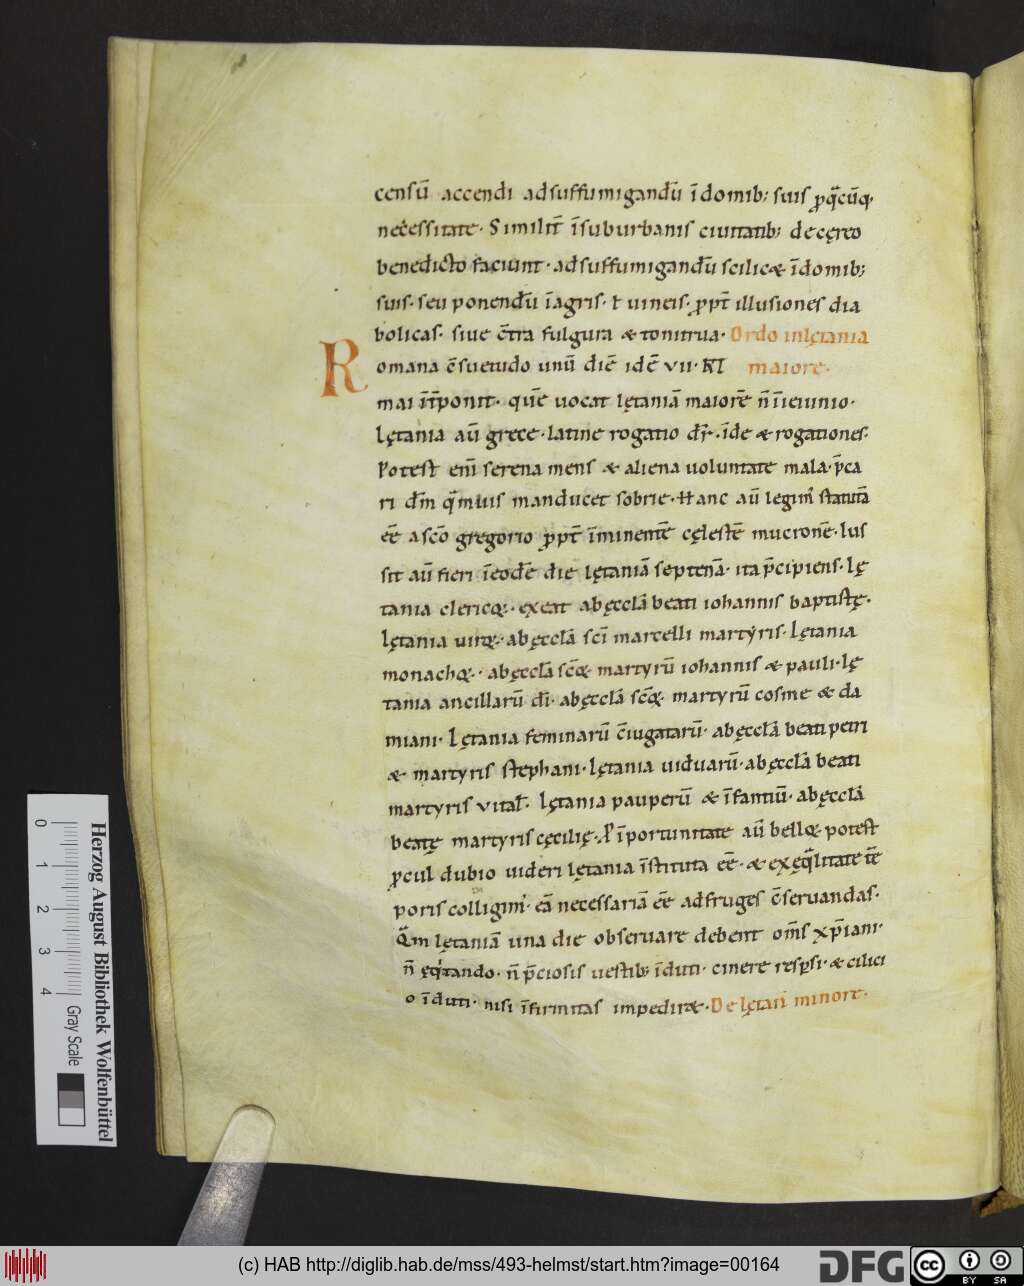 censū accendi adsuffumigandū īdomib; suis ꝓq̄cūq;
necessitate. Similiť īsuburbanis ciuitatib; decęreo
benedicto faciunt. adsuffumigandū scilicæ īdomib;
suis. seu ponendū īagris. ł uineis. ꝓpť illusiones dia
bolicas. siue c̄tra fulgura & tonitrua. Ordo inlętania
Romana c̄suetudo unū diē idē vii. kł maiore.
mai īťponit. quē uocat lętaniā maiorē n̄ īieiunio.
lętania aū grece. latine rogatio dr̄. īde & rogationes.
Potest enī serena mens & aliena uoluntate mala. p̄ca
ri dm̄ q̄muis manducet sobrie. Hanc aū legim᷒ statutā
eē ascō gregorio ꝓpť īminentē cęlestē mucronē. Ius
sit aū fieri īeodē die lętaniā septenā. ita p̄cipiens. lę
tania clericoꝝ. exeat abęcclā beati iohannis baptistę.
lętania uiroꝝ. abęcclā scī marcelli martyris. lętania
monachoꝝ. abęcclā scōꝝ martyrū iohannis & pauli. lę
tania ancillarū dī. abęcclā scōꝝ martyrū cosme & da
miani. Lętania feminarū c̄iugatarū. abęcclā beati petri
& martyris stephani. lętania uiduarū. abęcclā beati
martyris vitał. lętania pauperū & īfantiū. abęcclā
beatę martyris cęcilię. Pīportunitate aū belloꝝ potest
ꝓcul dubio uideri lętania īstituta eē. & exęq̄litate tē
poris colligim᷒. eā necessariā eē adfruges c̄seruandas.
Q̄m lętaniā una die obseruare debent om̄s xp̄iani.
n̄ ęq̇tando. n̄ p̄ciosis uestib; īduti. cinere respsi. & cilici
o īduti. nisi īfirmitas impediræ. De lętań minore.
0 1 2 3 4
Herzog August Bibliothek Wolfenbüttel
Gray Scale
(c) HAB http://diglib.hab.de/mss/493-helmst/start.htm?image=00164
DFG
cc BY SA